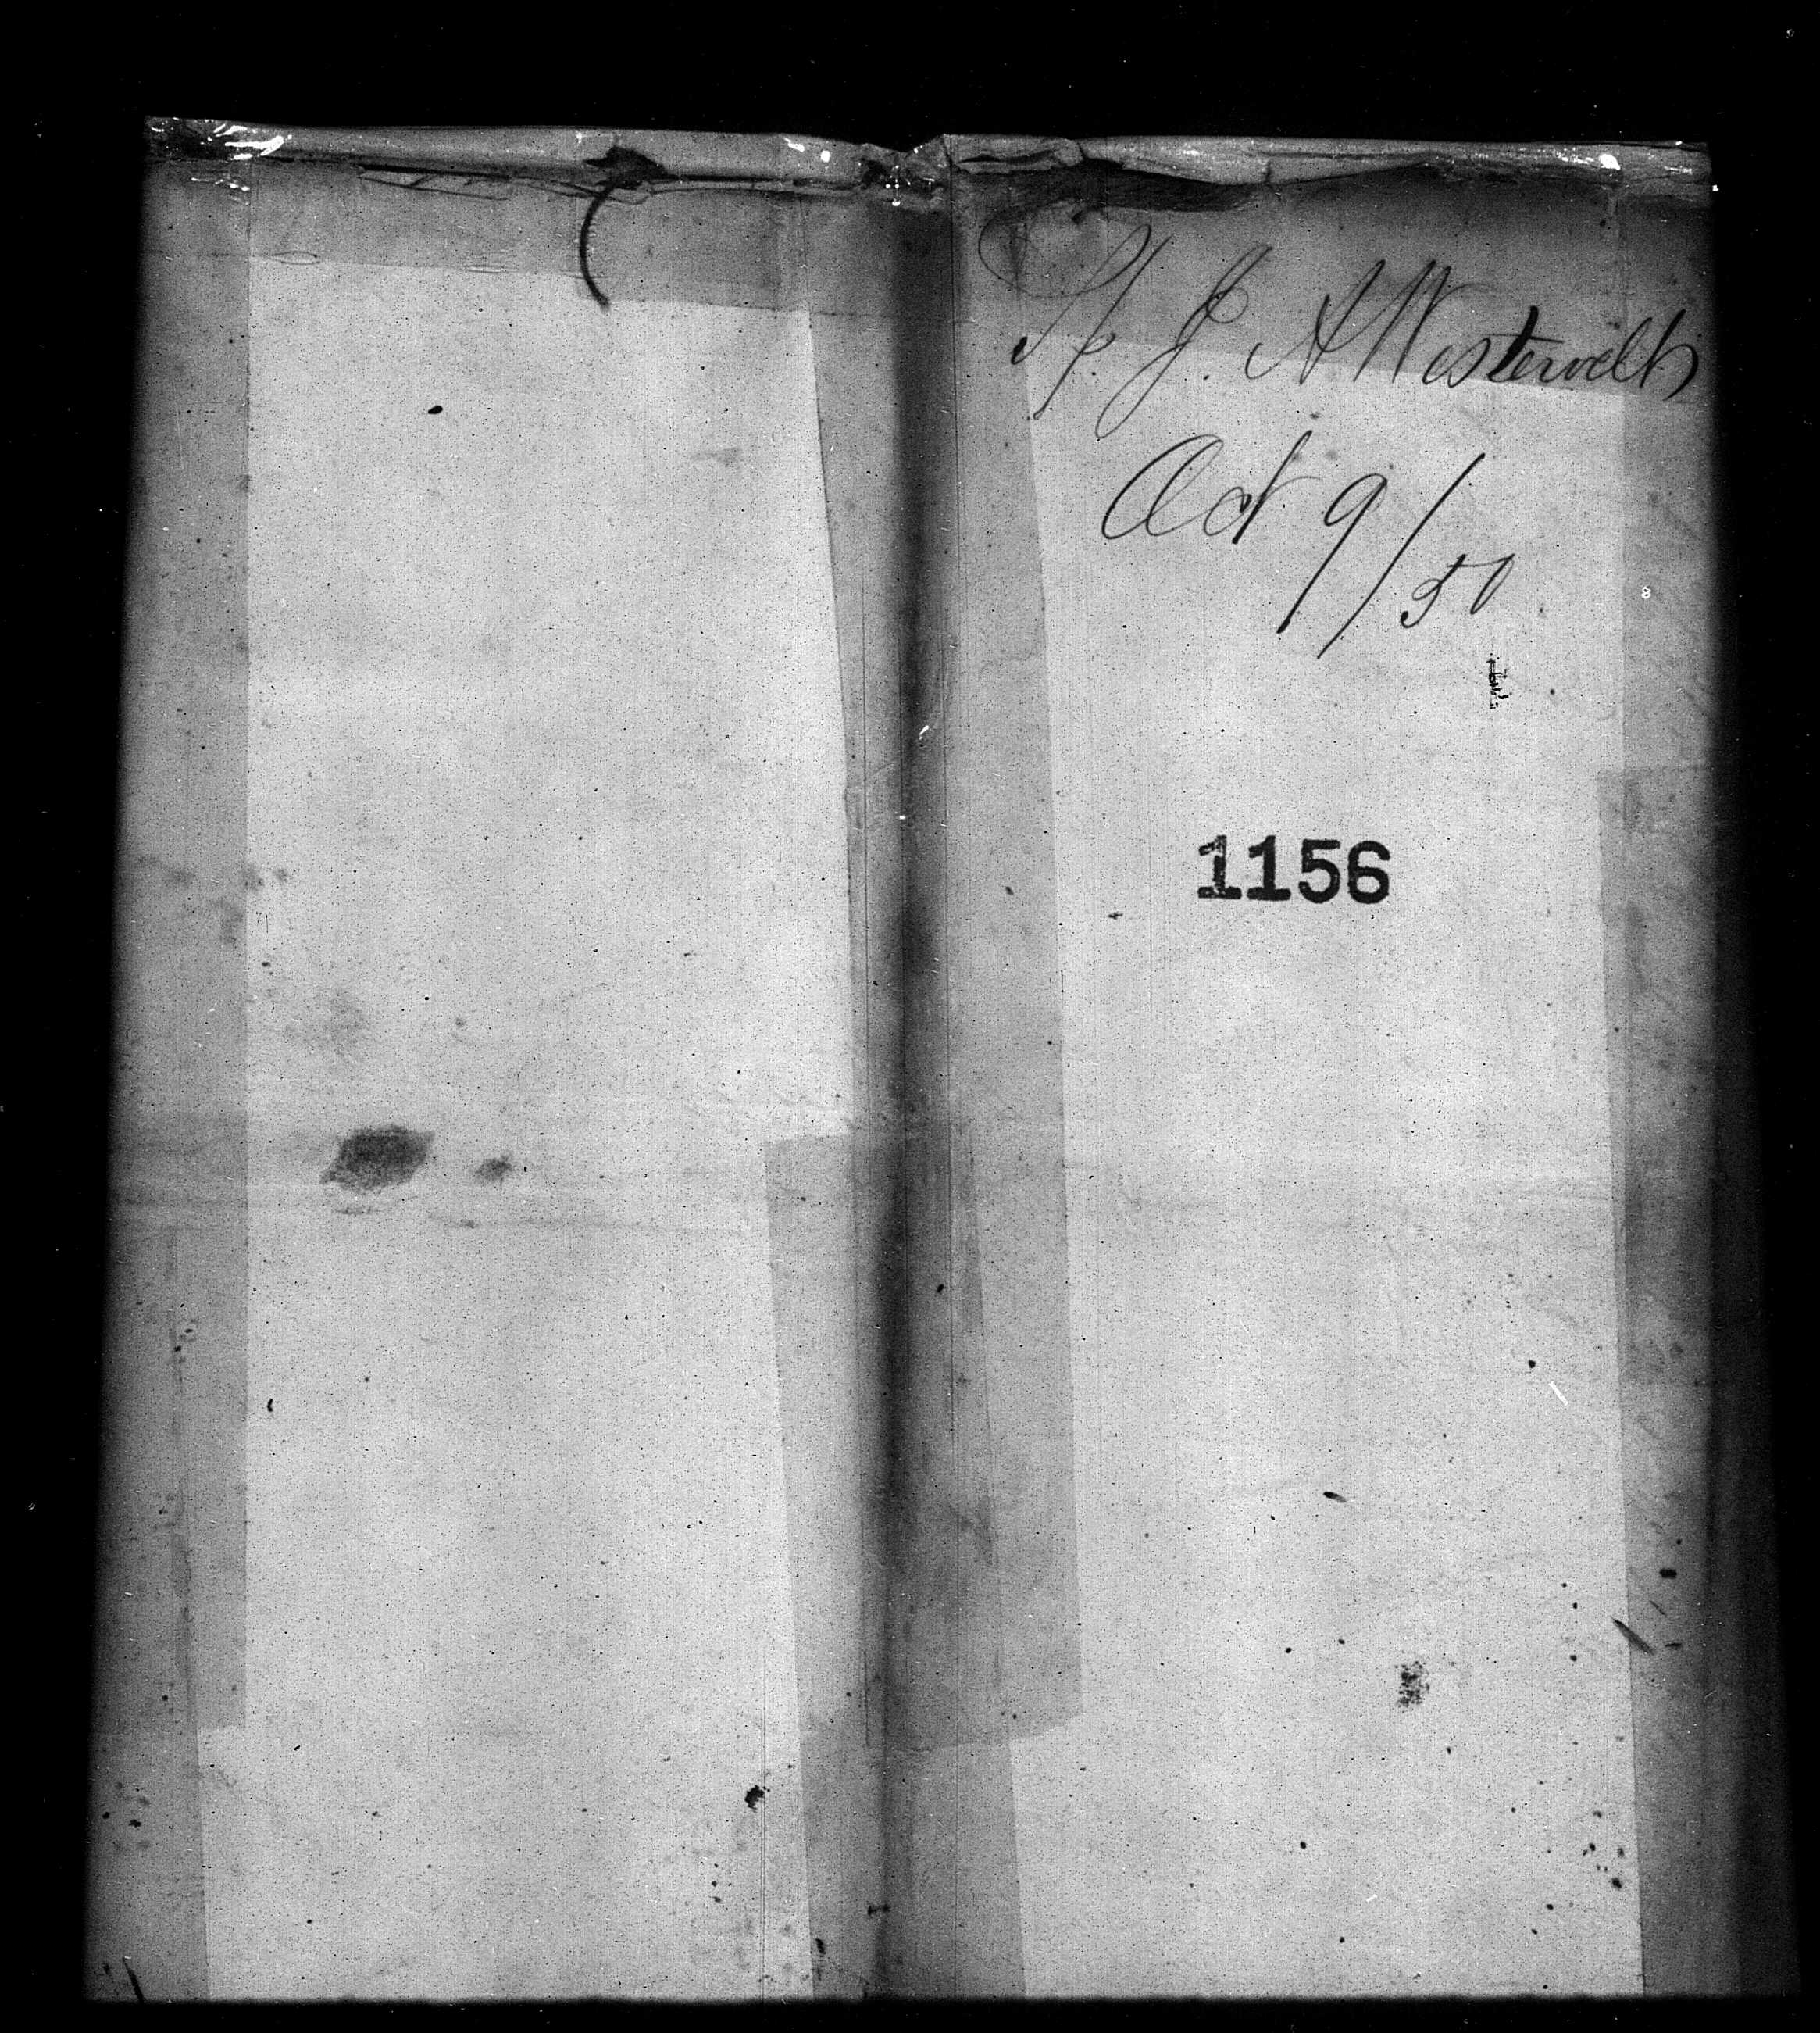 J. A Westervelt
Oct 9/50
1156